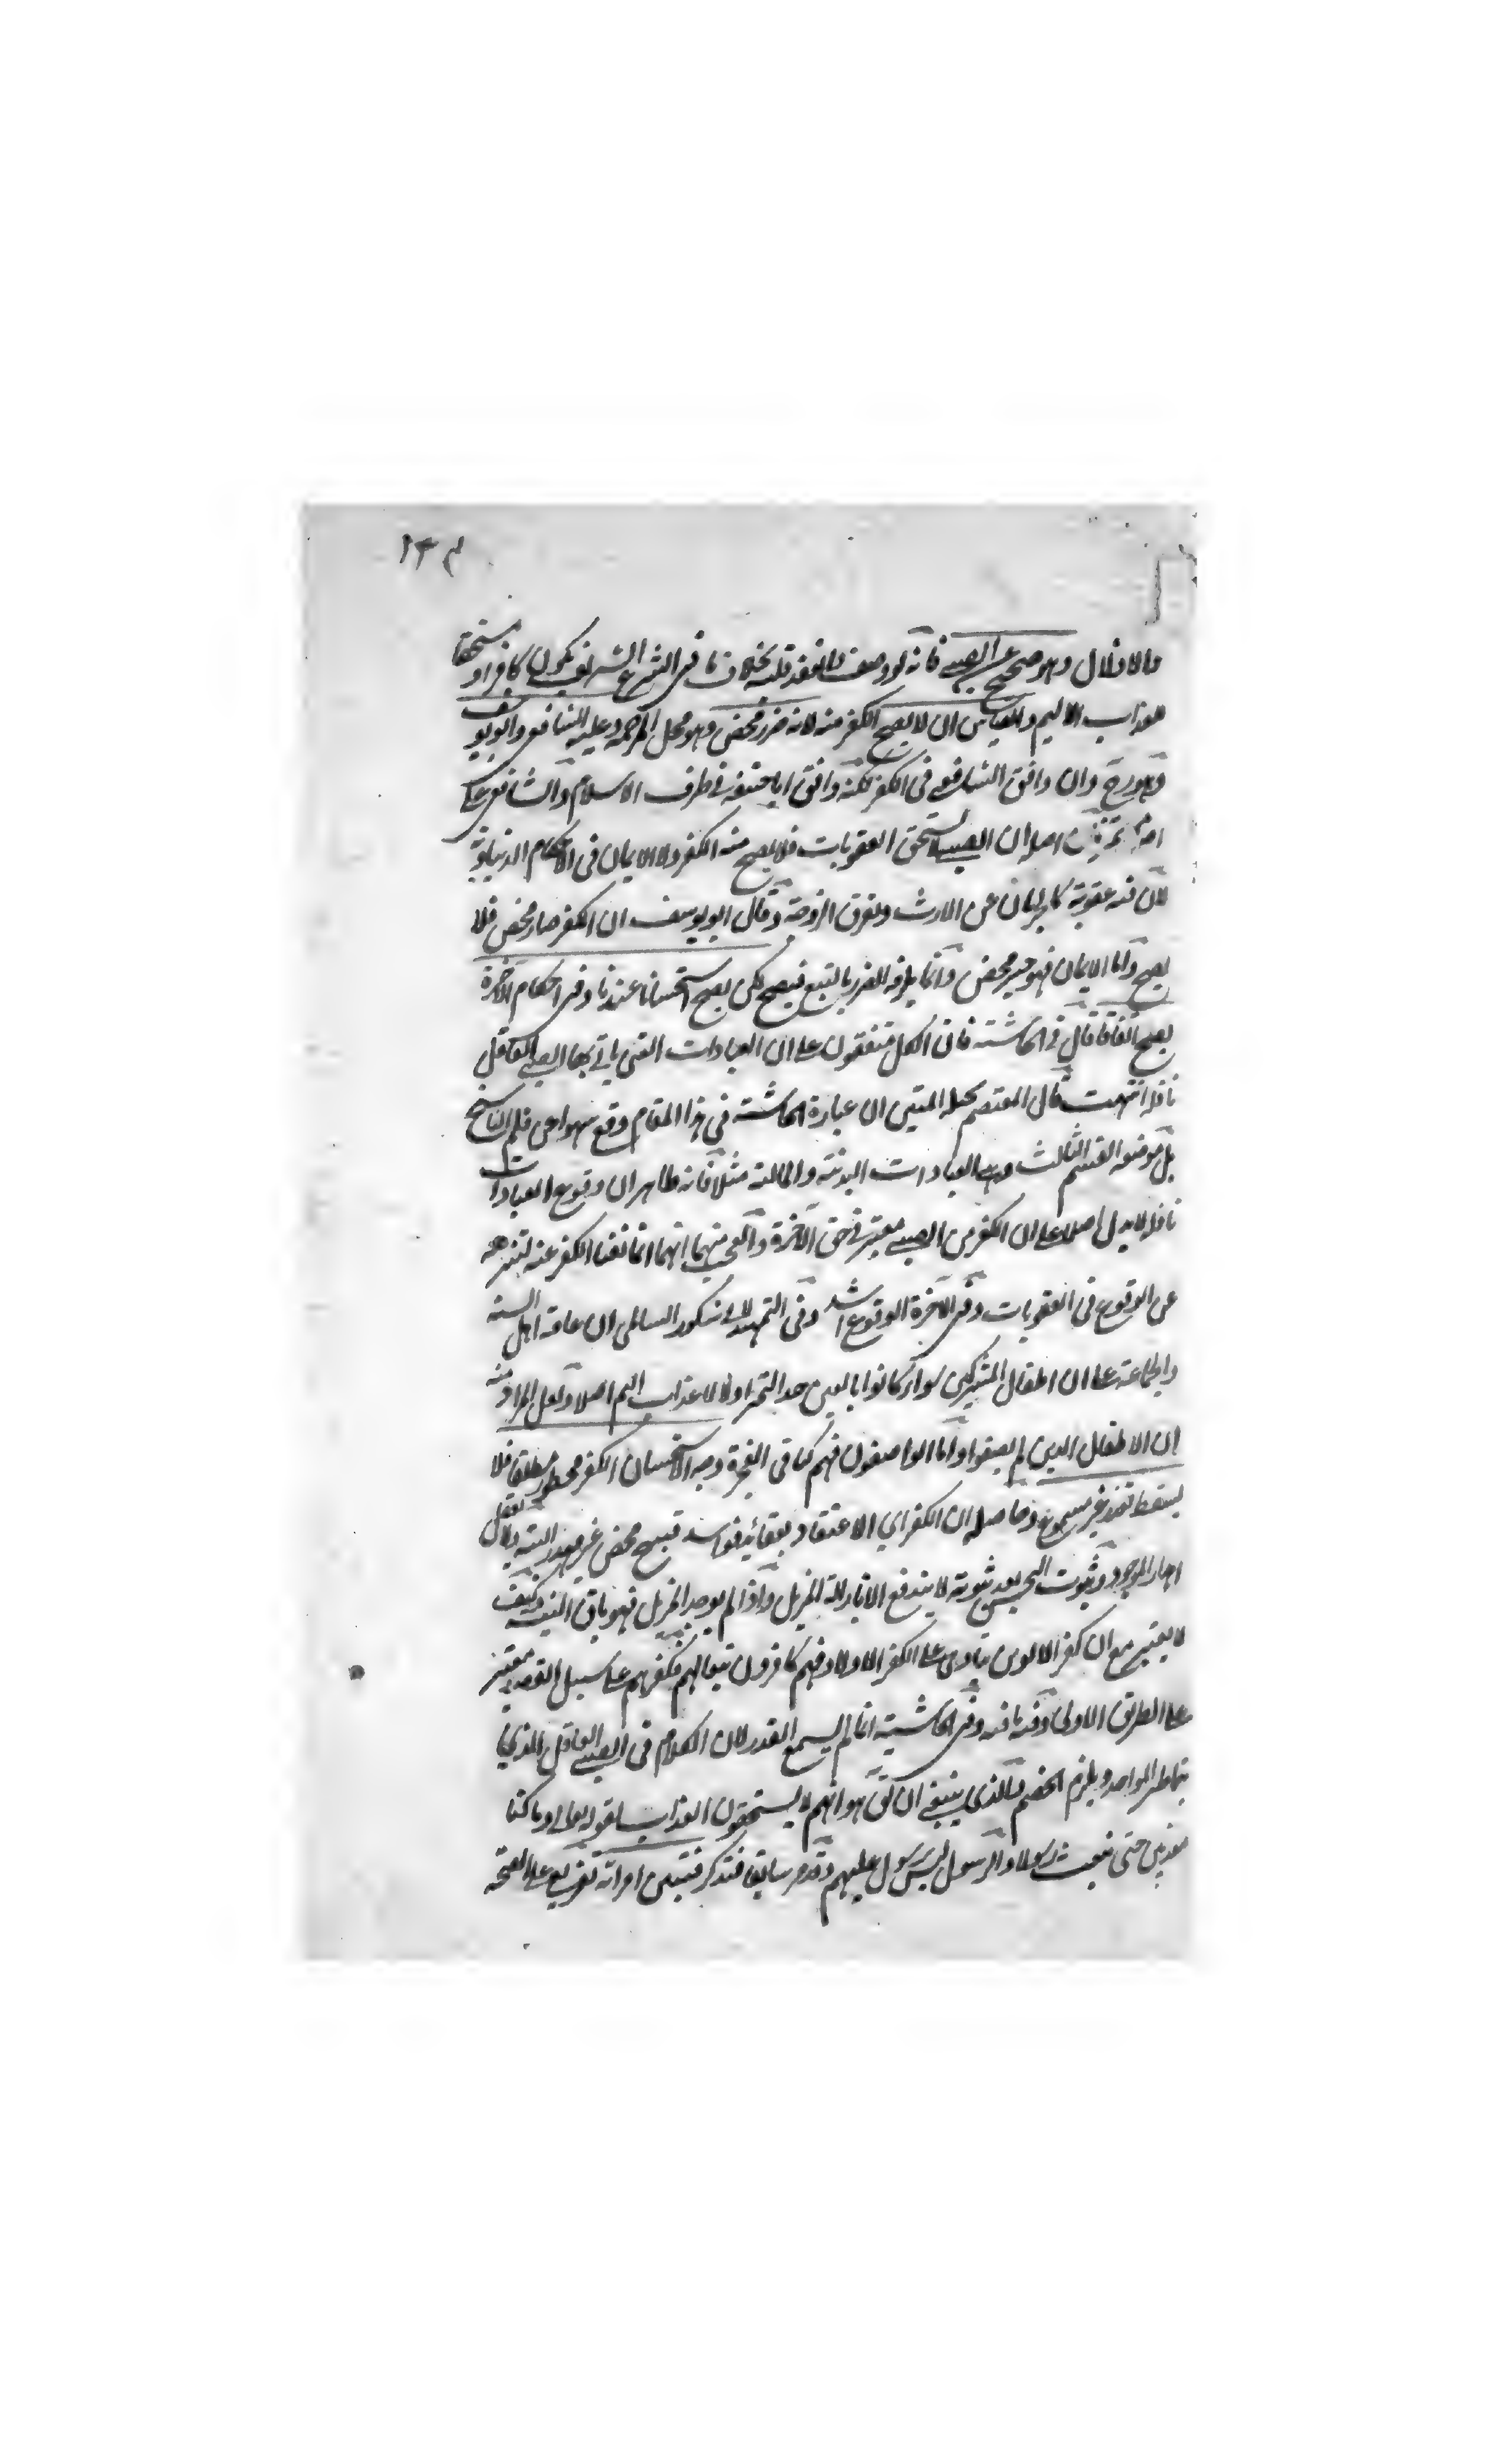 ١٣٤
والا فلا وهو صحيح من الصبي فانه لو وصف وانعقد قلبه بخلاف ما فى الشرع الشريف يكون كافرا ومستحقا
عذاب الاليم والقياس ان لا يصح الكفر منه لانه ضرر محض وهو محل المرحمة وعليه الشافعي وابو يوسف
وان وافق الشافعي فى الكفر لكنه وافق ابا حنيفة فى طرف الاسلام والشافعي على
اصله ان الصبي لا يستحق العقوبات فلا يصح منه الكفر ولا الايمان فى الاحكام الدنياوية
لان فيه عقوبة كالحرمان عن الارث وتفرق الزوجة وقال ابو يوسف ان الكفر ضار محض فلا
يصح واما الايمان فهو خير محض وانما يلزمه الضرر بالتبع فيصح لكن يصح استحسانا عندنا وفى احكام الآخرة
يصح اتفاقا قال فى الحاشية فان الكل متفقون على ان العبادات التى ياتى بها الصبي العاقل
نافلة انتهت قال المعتصم بحبله المتين ان عبارة الحاشية فى هذا المقام وقع سهوا من قلم الناسخ
بل موضعه القسم الثالث وهى العبادات البدنية والمالية مثلا فانه ظاهر ان وقوع العبادات
نافلة لا يدل اصلا على ان الكفر من الصبي معتبر فى حق الآخرة والعجب منهما انهما انما نفيا الكفر عنه لتنزهه
عن الوقوع فى العقوبات وفى الآخرة الوقوع اشد وفى التمهيد لابى شكور السالمى ان عامة اهل السنة
والجماعة على ان اطفال المشركين سواء كانوا بالغين حد التميز او لا لا عذاب اليهم اصلا ولعل المراد منه
ان الاطفال الذين لم يصفوا واما الواصفون فهم كباقى الفجرة وجه الاستحسان الكفر محظور مطلقا فلا
يسقط بعذر غير مسموع وحاصله ان الكفر اي الاعتقاد بعقائد فواسد قبيح محض غير معذر البتة ولا يعقل
اهدار الموجود وثبوت البحس بعد ثبوته لا يندفع الا بازالة المزيل واذا لم يوجد المزيل فهو باق البتة وكيف
لا يعتبر مع ان كفر الابوين يتادى على الكفر الاولاد فهم كافرون تبعا لهم فكفرهم على سبيل القصد معتبر
على الطريق الاولى وفيه ما فيه وفى الحاشية انما لم يسمع العذر لان الكلام فى الصبي العاقل الذى
يناظر المواحد ويلزم الخصم فالذى ينبغى ان يكون هو انهم لا يستحقون العذاب لقوله تعالى وما كنا
معذبين حتى نبعث رسولا والرسول ليس رسول عليهم وقد مر سابقا فتذكر فتبين امراته تفريع على الصحة